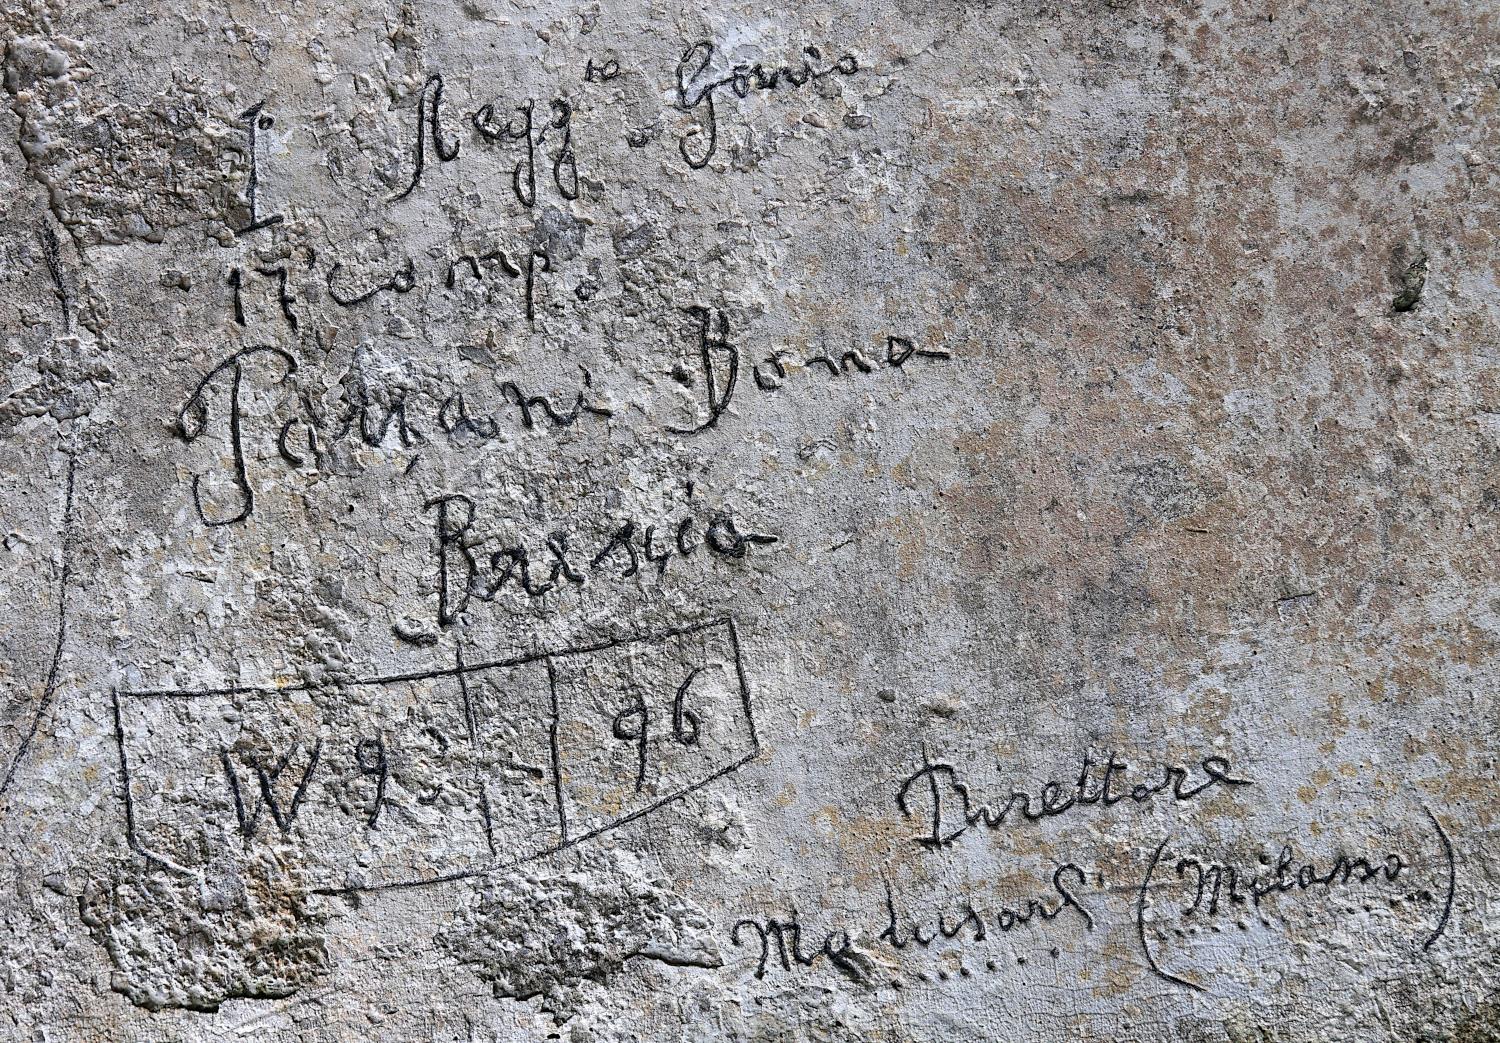 1° Regg.to Genio
17ª Comp.
Parzani Bona
Brescia
W 9 96
Direttore
(Milano)